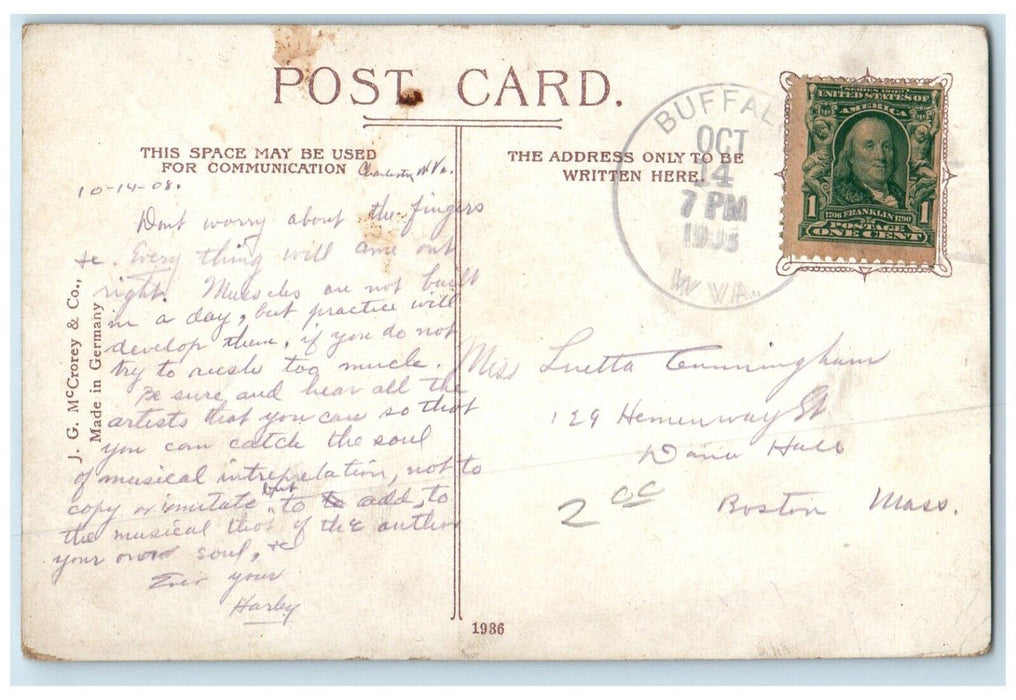 POST CARD.
THIS SPACE MAY BE USED
FOR COMMUNICATION
THE ADDRESS ONLY TO BE
WRITTEN HERE.
Charleston W Va.
10-14-08.
Dont worry about the fingers
&c. Every thing will come out
right. Muscles are not built
in a day, but practice will
develop them, if you do not
try to rush too much.
Be sure and hear all the
artists that you can so that
you can catch the soul
of musical intrepretation, not to
copy or imitate but to add, to
the musical that of the author
your own soul, &c
Ever your
Harley
J. G. McCrorey & Co.,
Made in Germany
1936
BUFFAL
OCT
14
7 PM
W VA.
SERIES 1902
UNITED STATES OF
AMERICA
1 1
1706 FRANKLIN 1790
POSTAGE
ONE CENT
Miss Luetta Cunningham
129 Hemenway St
Dana Hall
Boston Mass.
2 cc